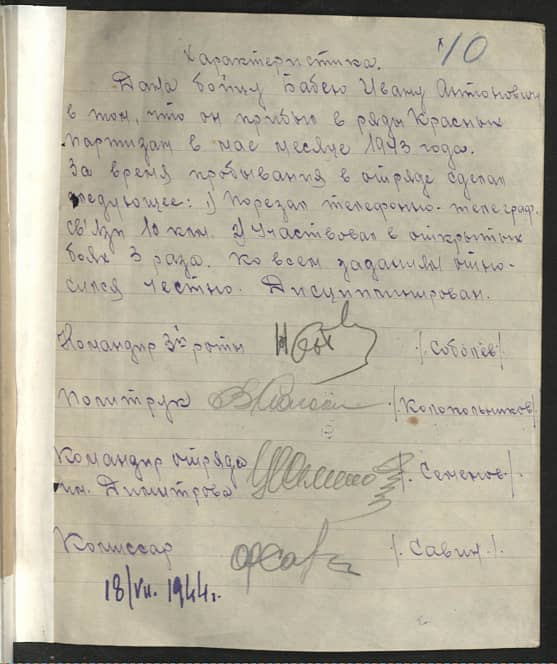 10
Характеристика.
Дана бойцу Бабею Ивану Антоновичу
в том, что он прибыл в ряды Красных
партизан в мае месяце 1943 года.
За время пробывания в отряде сделал
следующее: 1) Порезал телефонно-телеграф.
св'язи 10 клм. 2) Участвовал в открытых
боях 3 раза. Ко всем заданиям отно-
сился честно. Дисциплинирован.
Командир 3й роты /Соболев/
Политрук /Колопольников/
Командир отряда /. Семенов/
им. Димитрова
Комиссар /. Савин ./
18/VII. 1944 г.